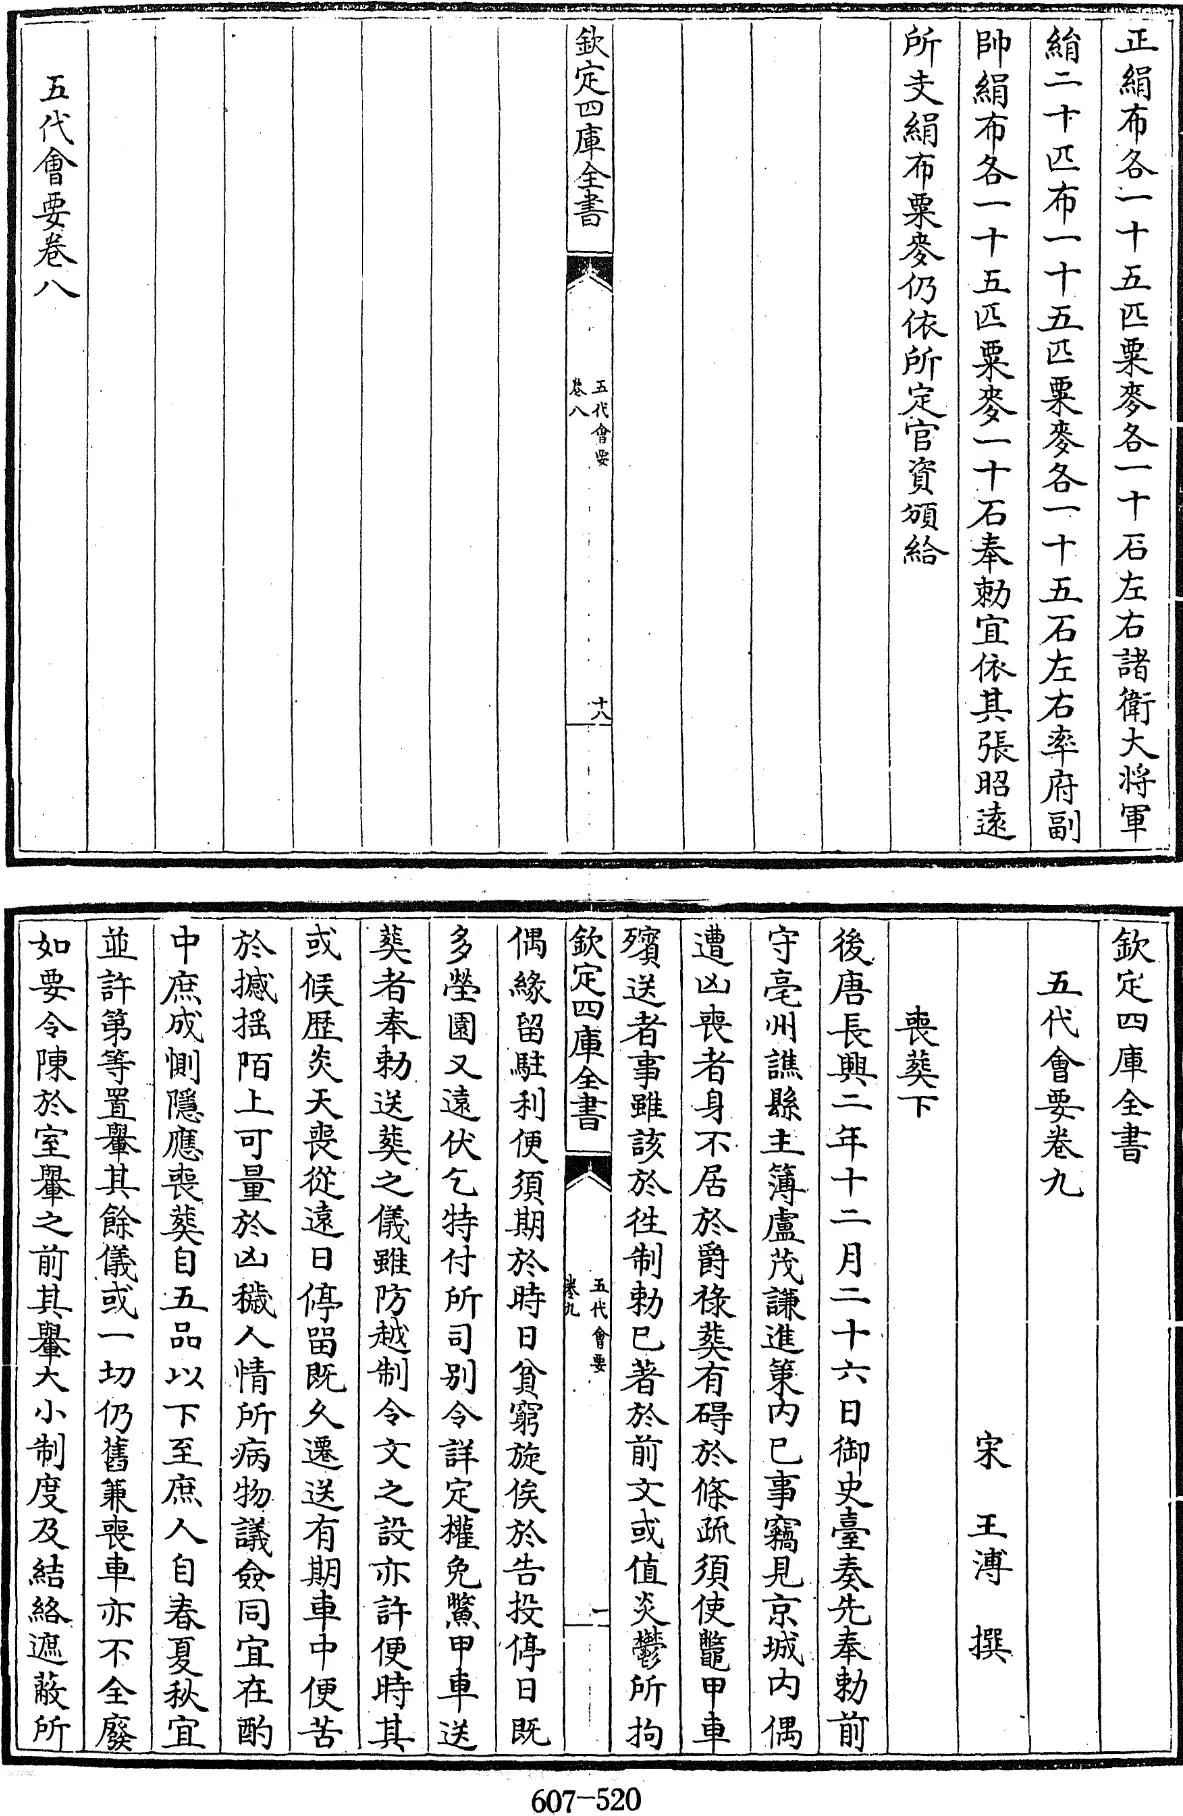 正絹布各一十五匹粟麥各一十石左右諸衛大將軍
絹二十匹布一十五匹粟麥各一十五石左右率府副
帥絹布各一十五匹粟麥一十石奉勅宜依其張昭遠
所支絹布粟麥仍依所定官資頒給
欽定四庫全書
五代會要
卷八
十八
五代會要卷八
欽定四庫全書
五代會要卷九
宋 王溥 撰
喪葬下
後唐長興二年十二月二十六日御史臺奏先奉勅前
守亳州譙縣主簿盧茂謙進策內已事竊見京城內偶
遭凶喪者身不居於爵祿葬有碍於條疏須使鼈甲車
殯送者事雖該於徃制勅已著於前文或值炎鬱所拘
欽定四庫全書
五代會要
卷九
一
偶緣留駐利便須期於時日貧窮旋俟於告投停日既
多塋園又遠伏乞特付所司别令詳定權免鱉甲車送
葬者奉勅送葬之儀雖防越制令文之設亦許便時其
或候歴炎天喪從遠日停留既久遷送有期車中便苦
於撼揺陌上可量於凶穢人情所病物議僉同宜在酌
中庶成惻隱應喪葬自五品以下至庶人自春夏秋宜
並許第等置轝其餘儀或一切仍舊兼喪車亦不全廢
如要令陳於室轝之前其轝大小制度及結絡遮蔽所
607-520